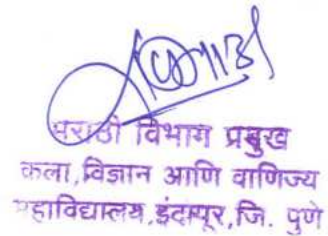 मराठी विभाग प्रमुख
कला,विज्ञान आणि वाणिज्य
महाविद्यालय,इंदापूर,जि. पुणे